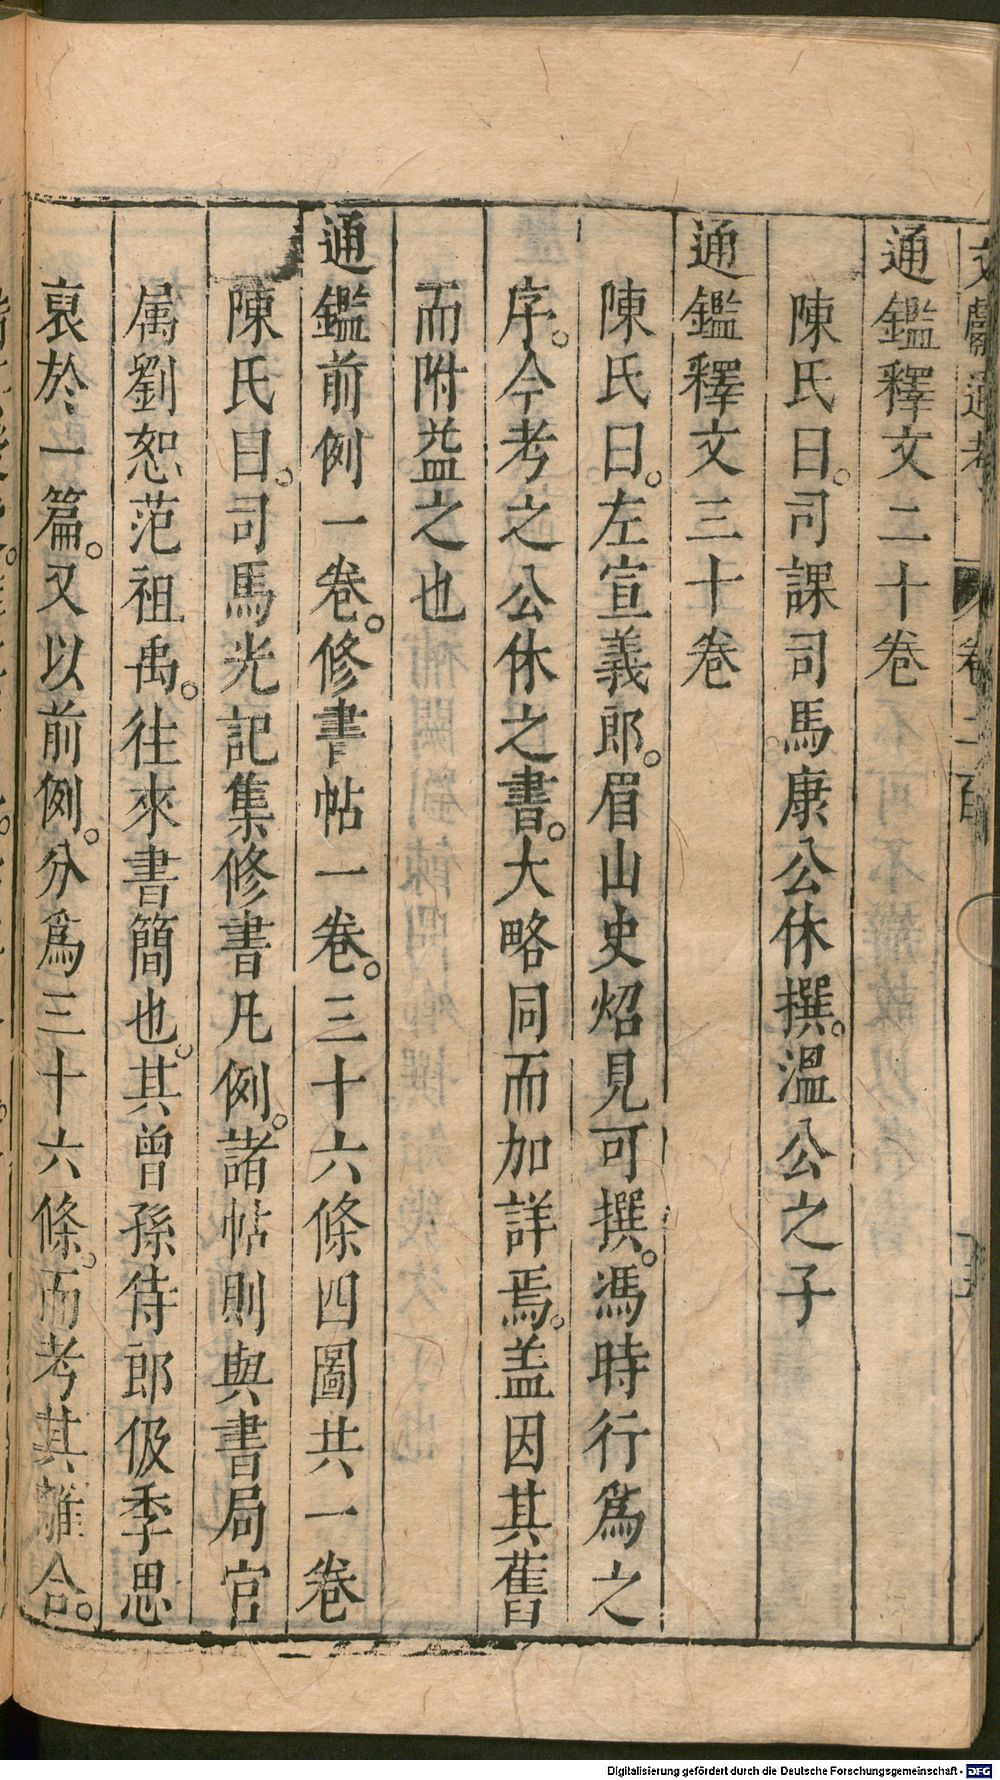 文獻通考 卷二百
通鑑釋文二十卷
陳氏曰。司課司馬康公休撰。溫公之子
通鑑釋文三十卷
陳氏曰。左宣義郎。眉山史炤見可撰。馮時行爲之
序。今考之公休之書。大略同而加詳焉。盖因其舊
而附益之也
通鑑前例一卷。修書帖一卷。三十六條四圖共一卷
陳氏曰。司馬光記集修書凡例。諸帖則與書局官
属劉恕范祖禹。往來書簡也。其曾孫侍郎伋季思
裒於一篇。又以前例。分爲三十六條。而考其離合。
Digitalisierung gefördert durch die Deutsche Forschungsgemeinschaft - DFG